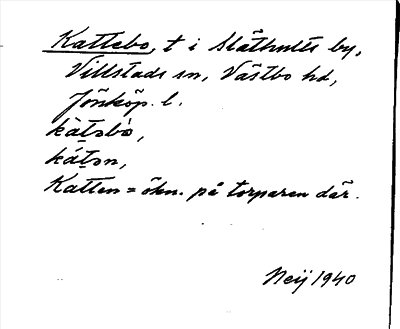 Kattebo, t i Släthults by,
Villstads sn, Västbo hd,
Jönköp. l.
kàt̀əbò,
kát̀ən,
Katten = ökn. på torparen där.
Neij 1940